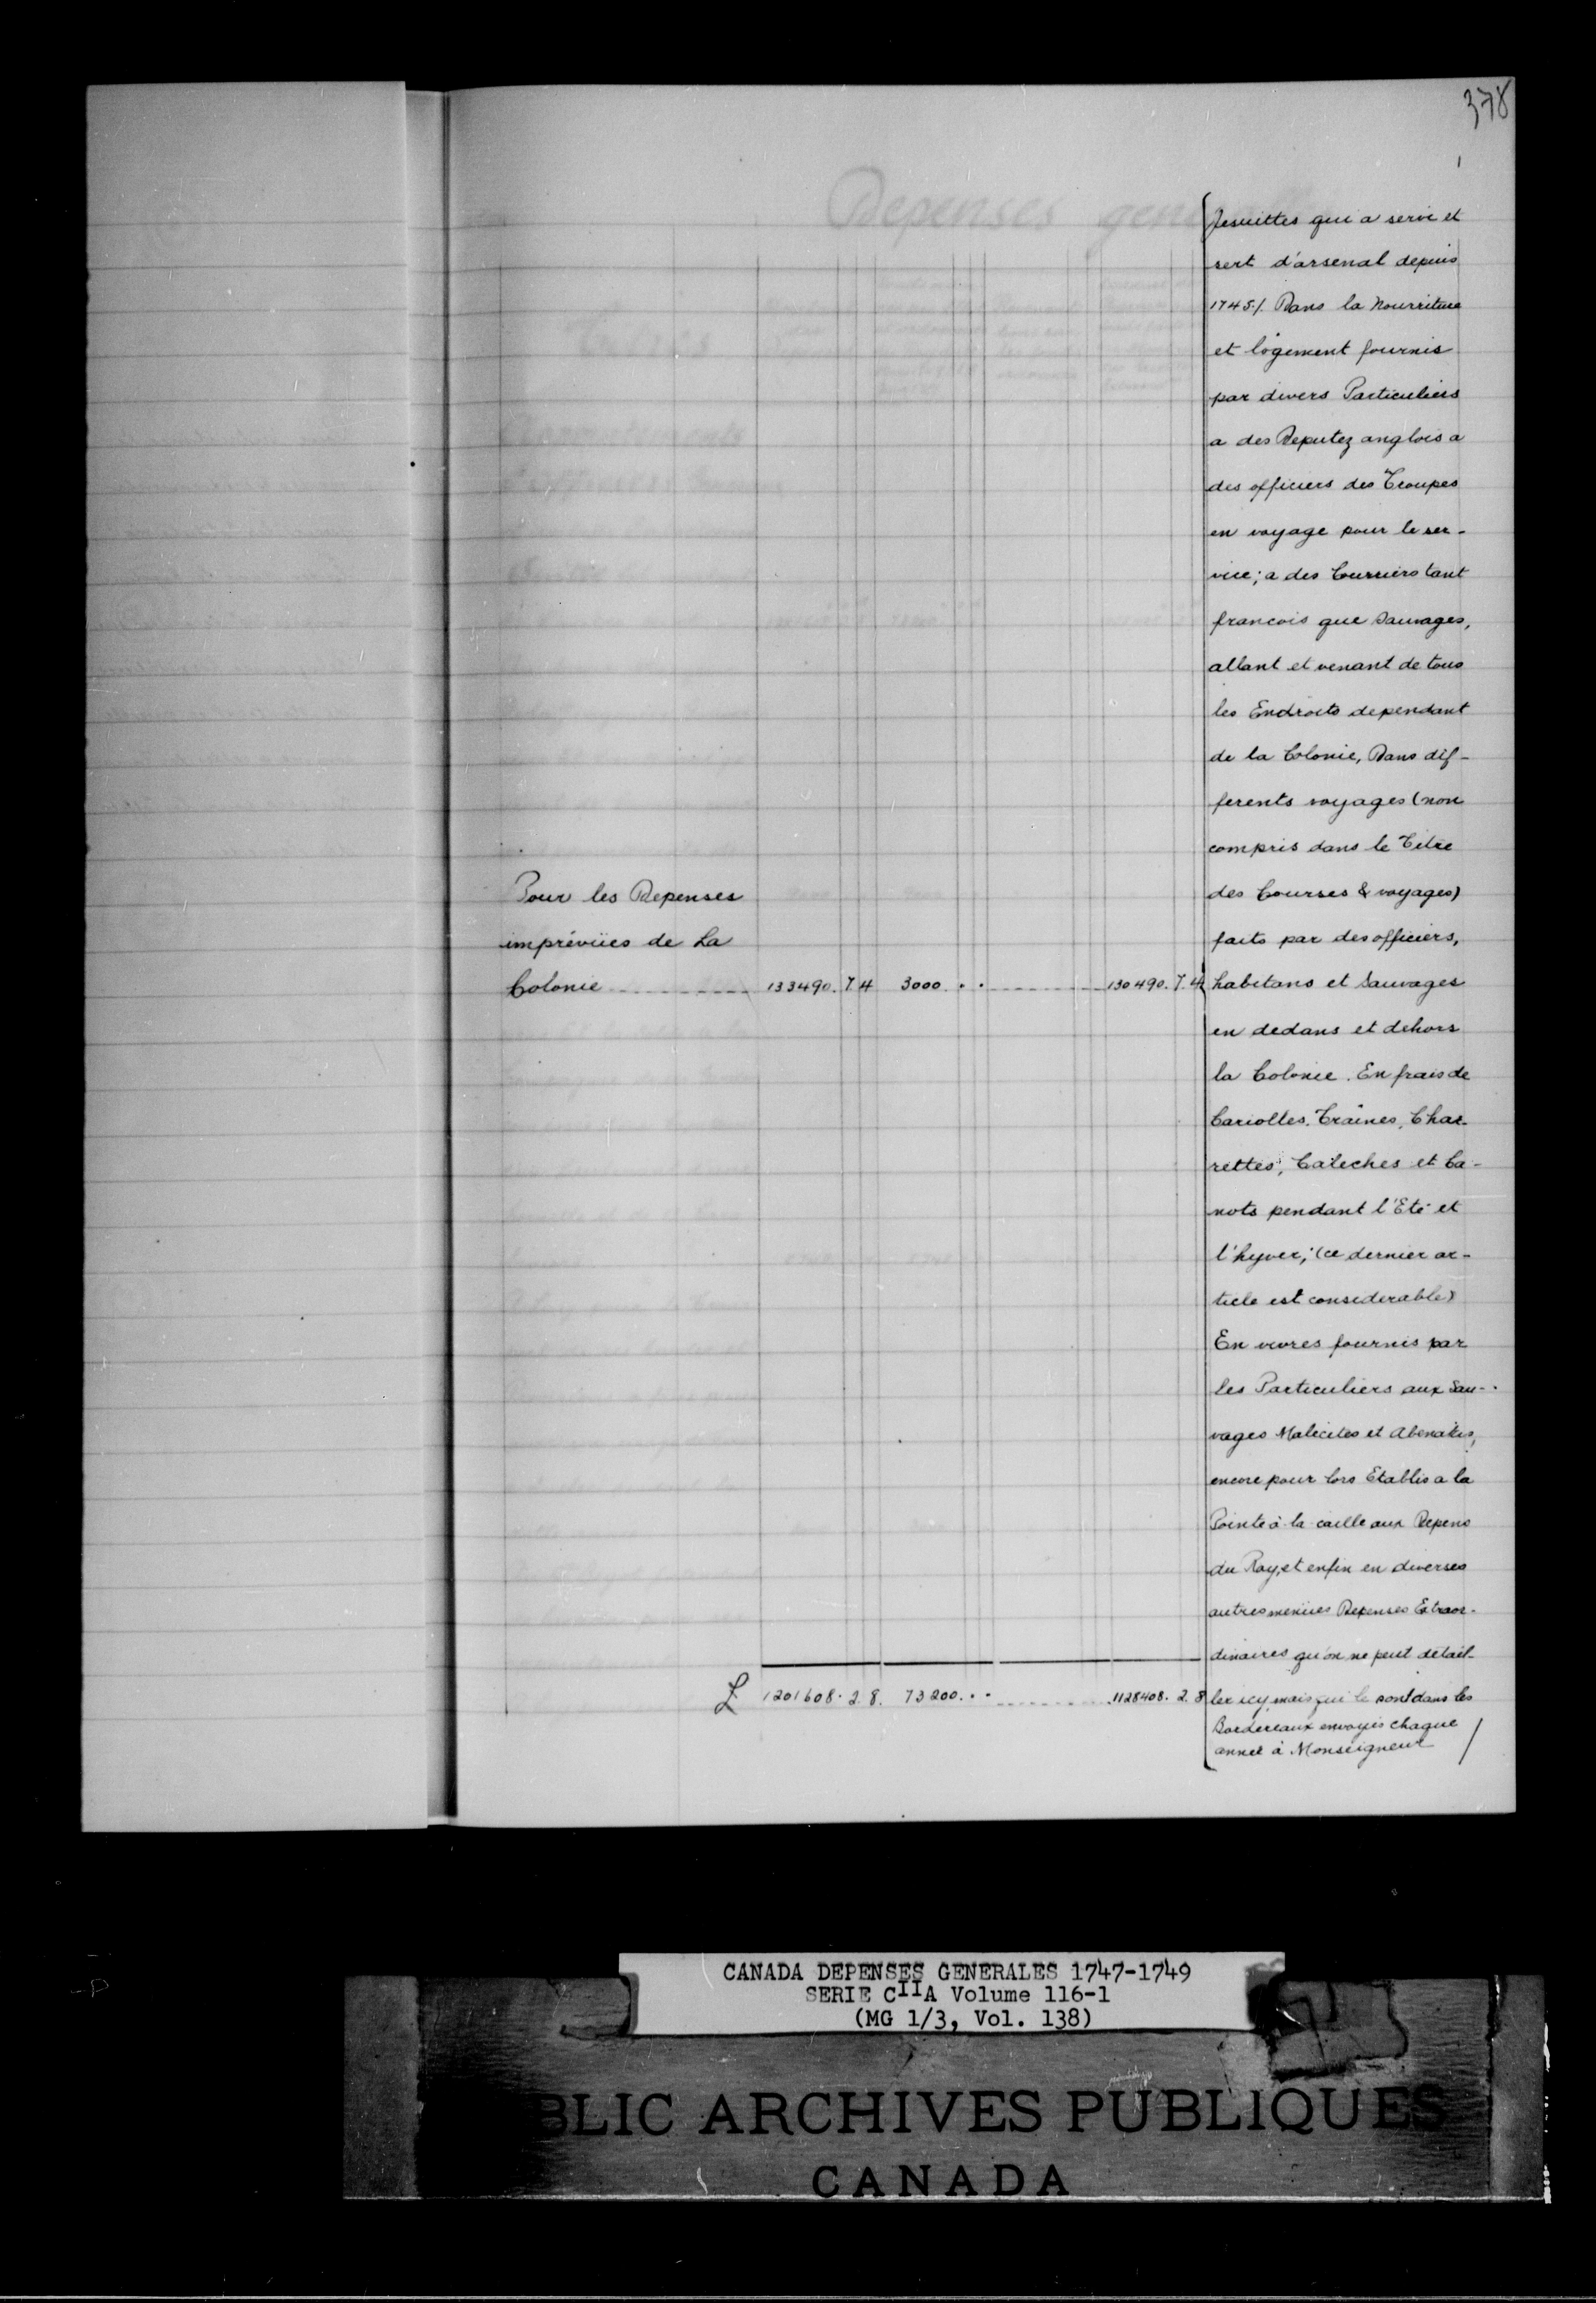 378
Depenses gen
Jesuittes qui a servi et
sert d'arsenal depuis
1745./. Dans la Nourriture
et logement fournis
par divers Particuliers
a des Deputez anglois a
des officiers des Troupes
en voyage pour le ser-
vice; a des Courriers tant
francois que Sauvages,
allant et venant de tous
les Endroits dependant
de la Colonie, Dans dif-
ferents voyages (non
compris dans le Titre
des Courses & voyages)
faits par des officiers,
habitans et Sauvages
en dedans et dehors
la Colonie. En frais de
Cariolles, Traines, Char-
rettes, Caleches et Ca-
nots pendant l'Eté et
l'hyver; (ce dernier ar-
ticle est considerable)
En vivres fournis par
les Particuliers aux Sau-
vages Malecites et Abenakis,
encore pour lors Etablis a la
Pointe à la caille aux Depens
du Roy, et enfin en diverses
autres menües Depenses Extraor-
dinaires qu'on ne peut detail-
ler icy mais qui le sont dans les
Bordereaux envoyés chaque
année à Monseigneur /
Pour les Depenses
imprévües de La
Colonie 133490. 7. 4 3000 . . 130490. 7. 4
£ 1201608. 2. 8. 73200. . . 1128408. 2. 8
CANADA DEPENSES GENERALES 1747-1749
SERIE CIIA Volume 116-1
(MG 1/3, Vol. 138)
BLIC ARCHIVES PUBLIQUES
CANADA